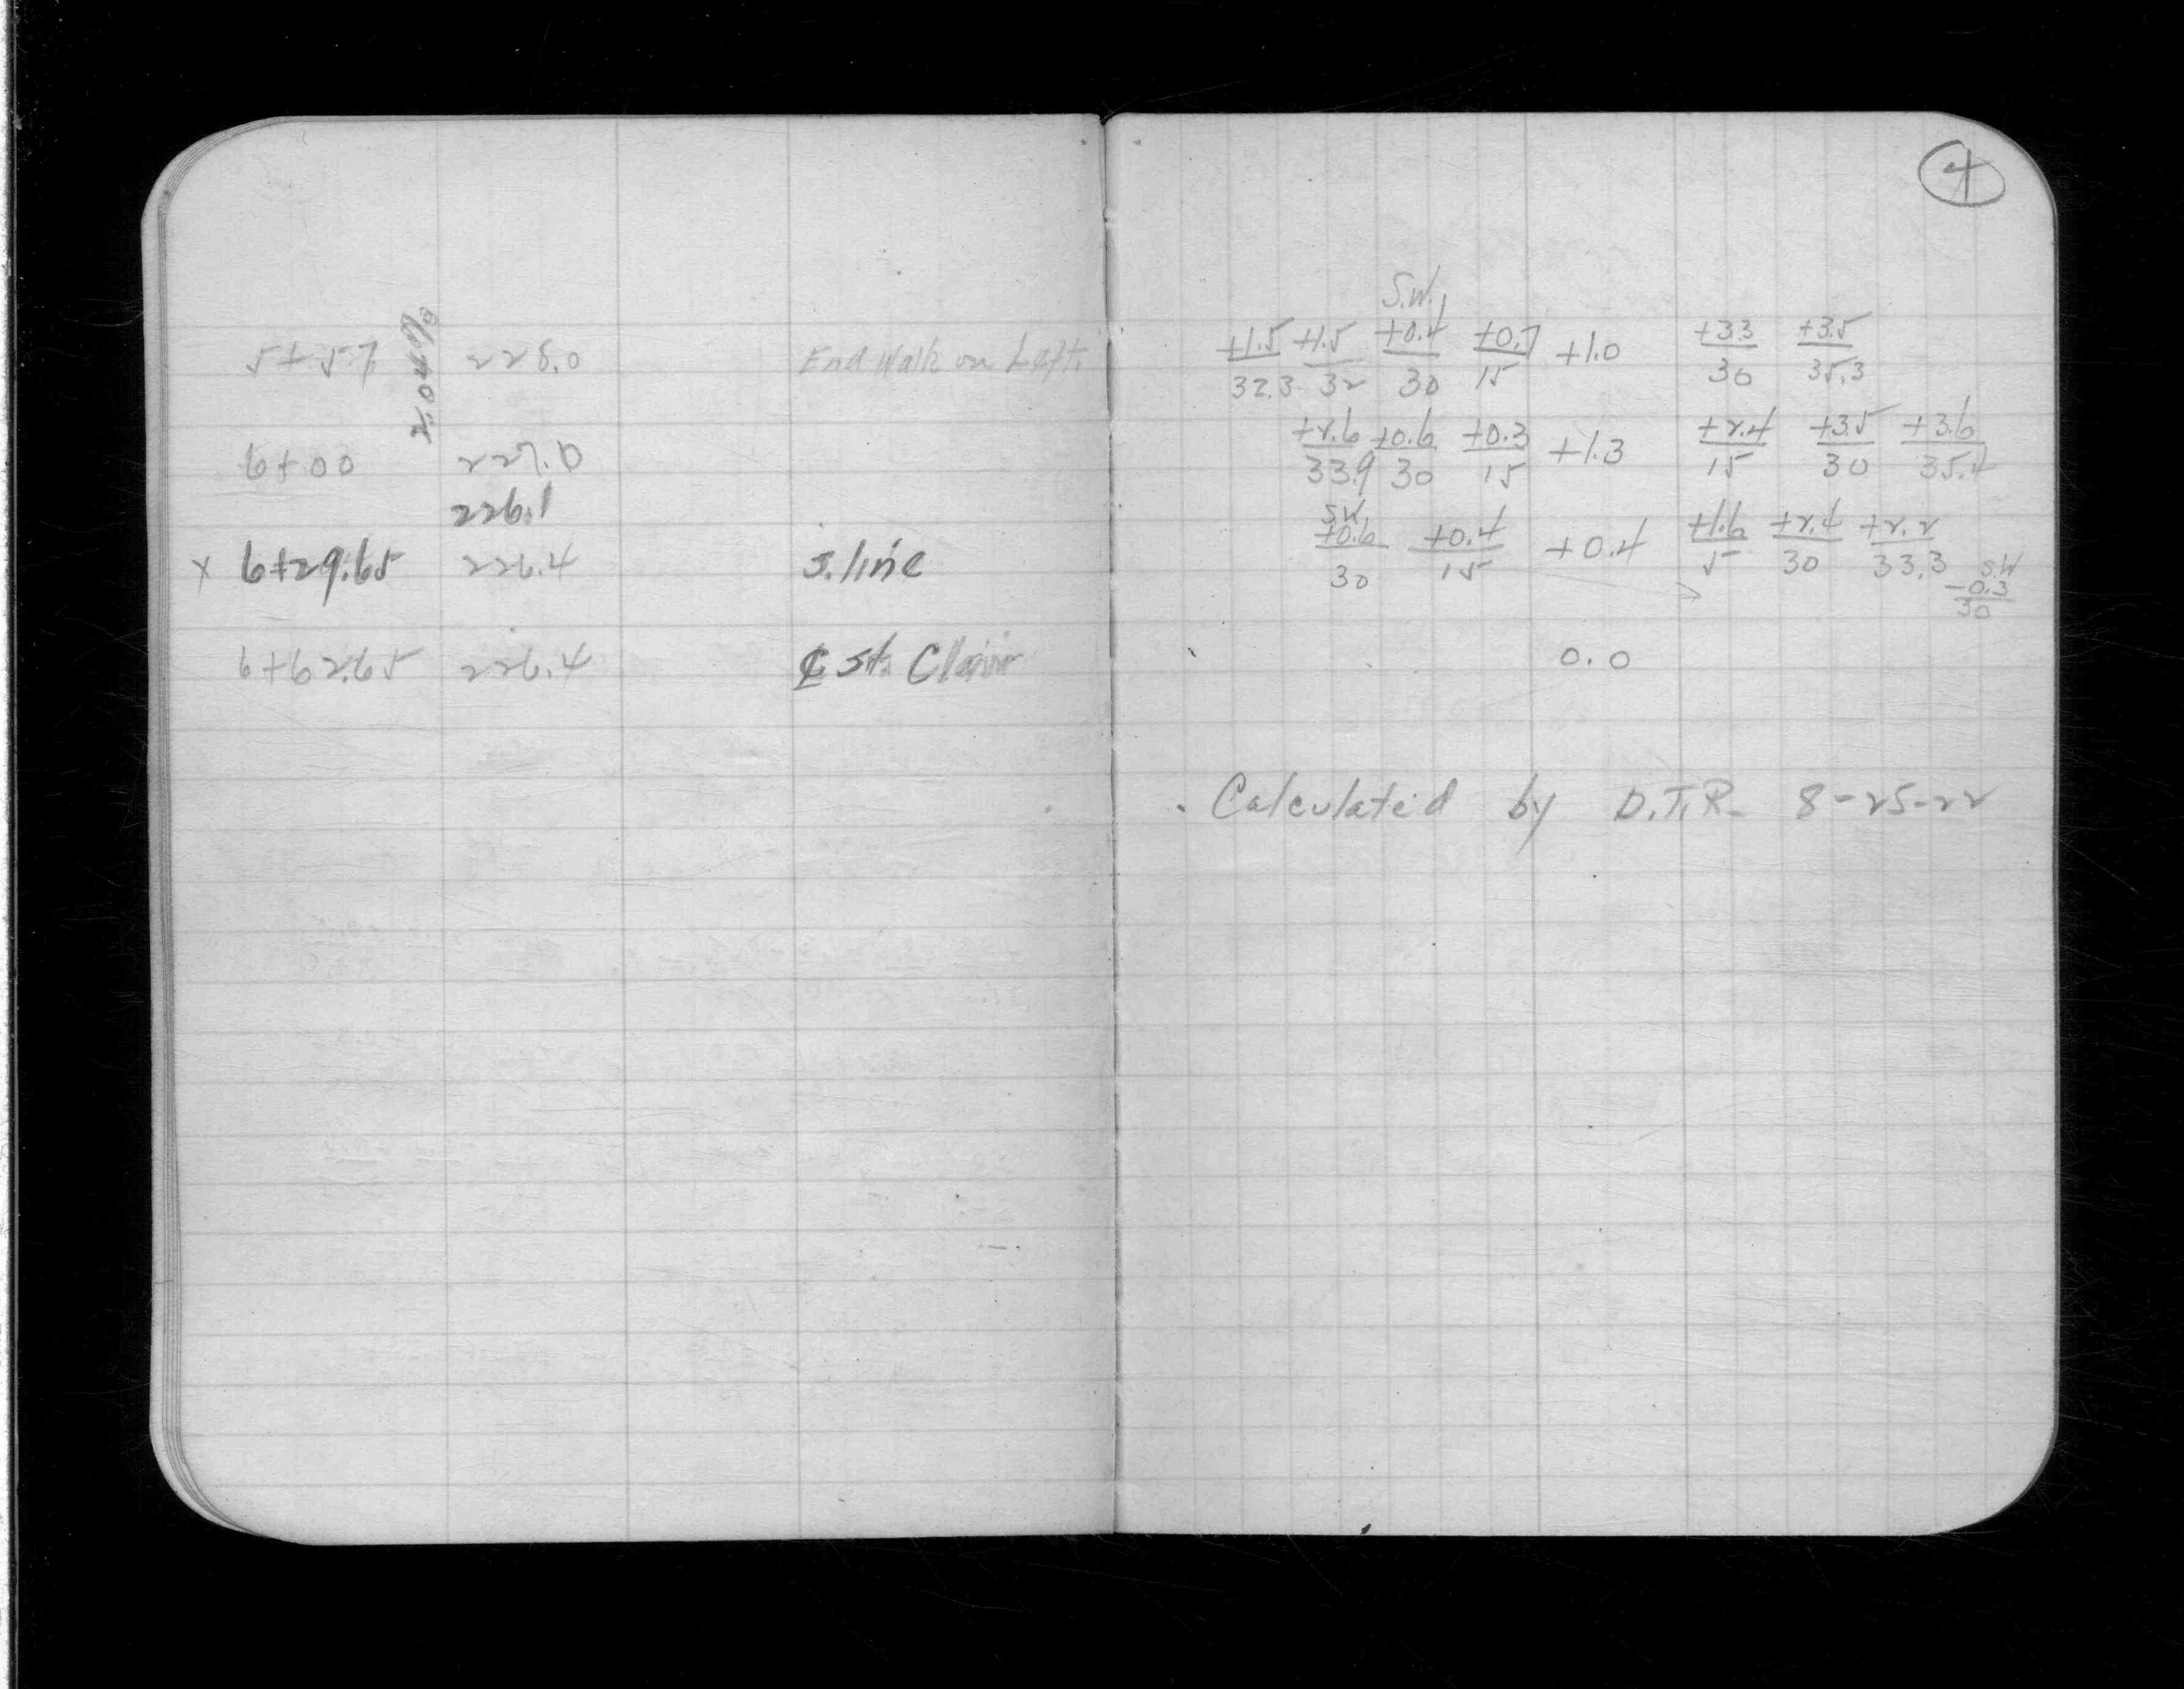 4
S.W.
5+57 228.0 End Walk on Left. +1.5/32.3 +1.5/32 +0.4/30 +0.7/15 +1.0 +3.3/30 +3.5/35.3
6+00 227.0 +2.6/33.9 +0.6/30 +0.3/15 +1.3 +2.4/15 +3.5/30 +3.6/35.4
226.1
S.W
x 6+29.65 226.4 S. line +0.6/30 +0.4/15 +0.4 +1.6/15 +2.4/30 +2.2/33.3 S.W -0.3/30
6+62.65 226.4 ℄ St. Clair 0.0
Calculated by D.T.R. 8-25-22